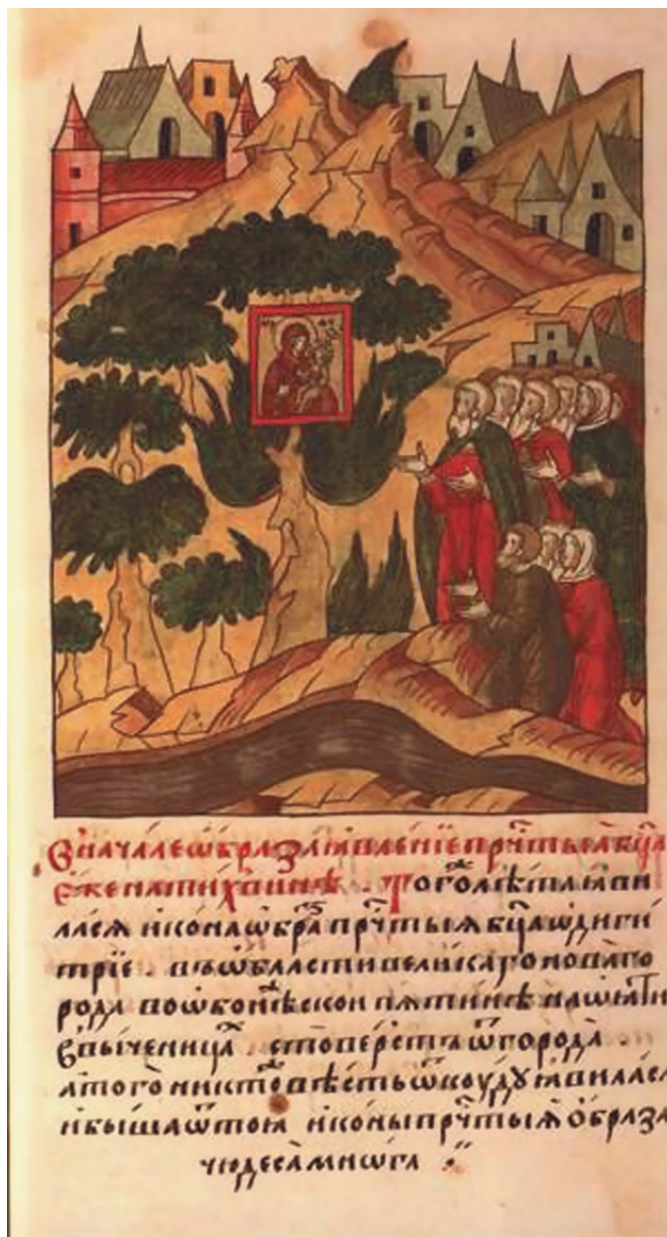 Ѡ началеѡбразаꙗвленїепрⷭ҇тыꙗбцⷣа
еженатихвинѣ . Тогоⷤлѣтаꙗви
лася иконаѡбраⷥпрⷭ҇тыѧбцⷣаѡдиги
трїе . въѡбластивеликагоновагⷪ
рода воѡбонѣжскои пѧтинѣ наѡѧти
Ѡвыченицаⷯ . стовѣрстаѿгорода .
атогониктоⷤвѣстьѿкоудꙋꙗвилася
ибышаѿтоꙗ иконыпрⷭ҇тыѧѻбраза
чюдесамнѡга .